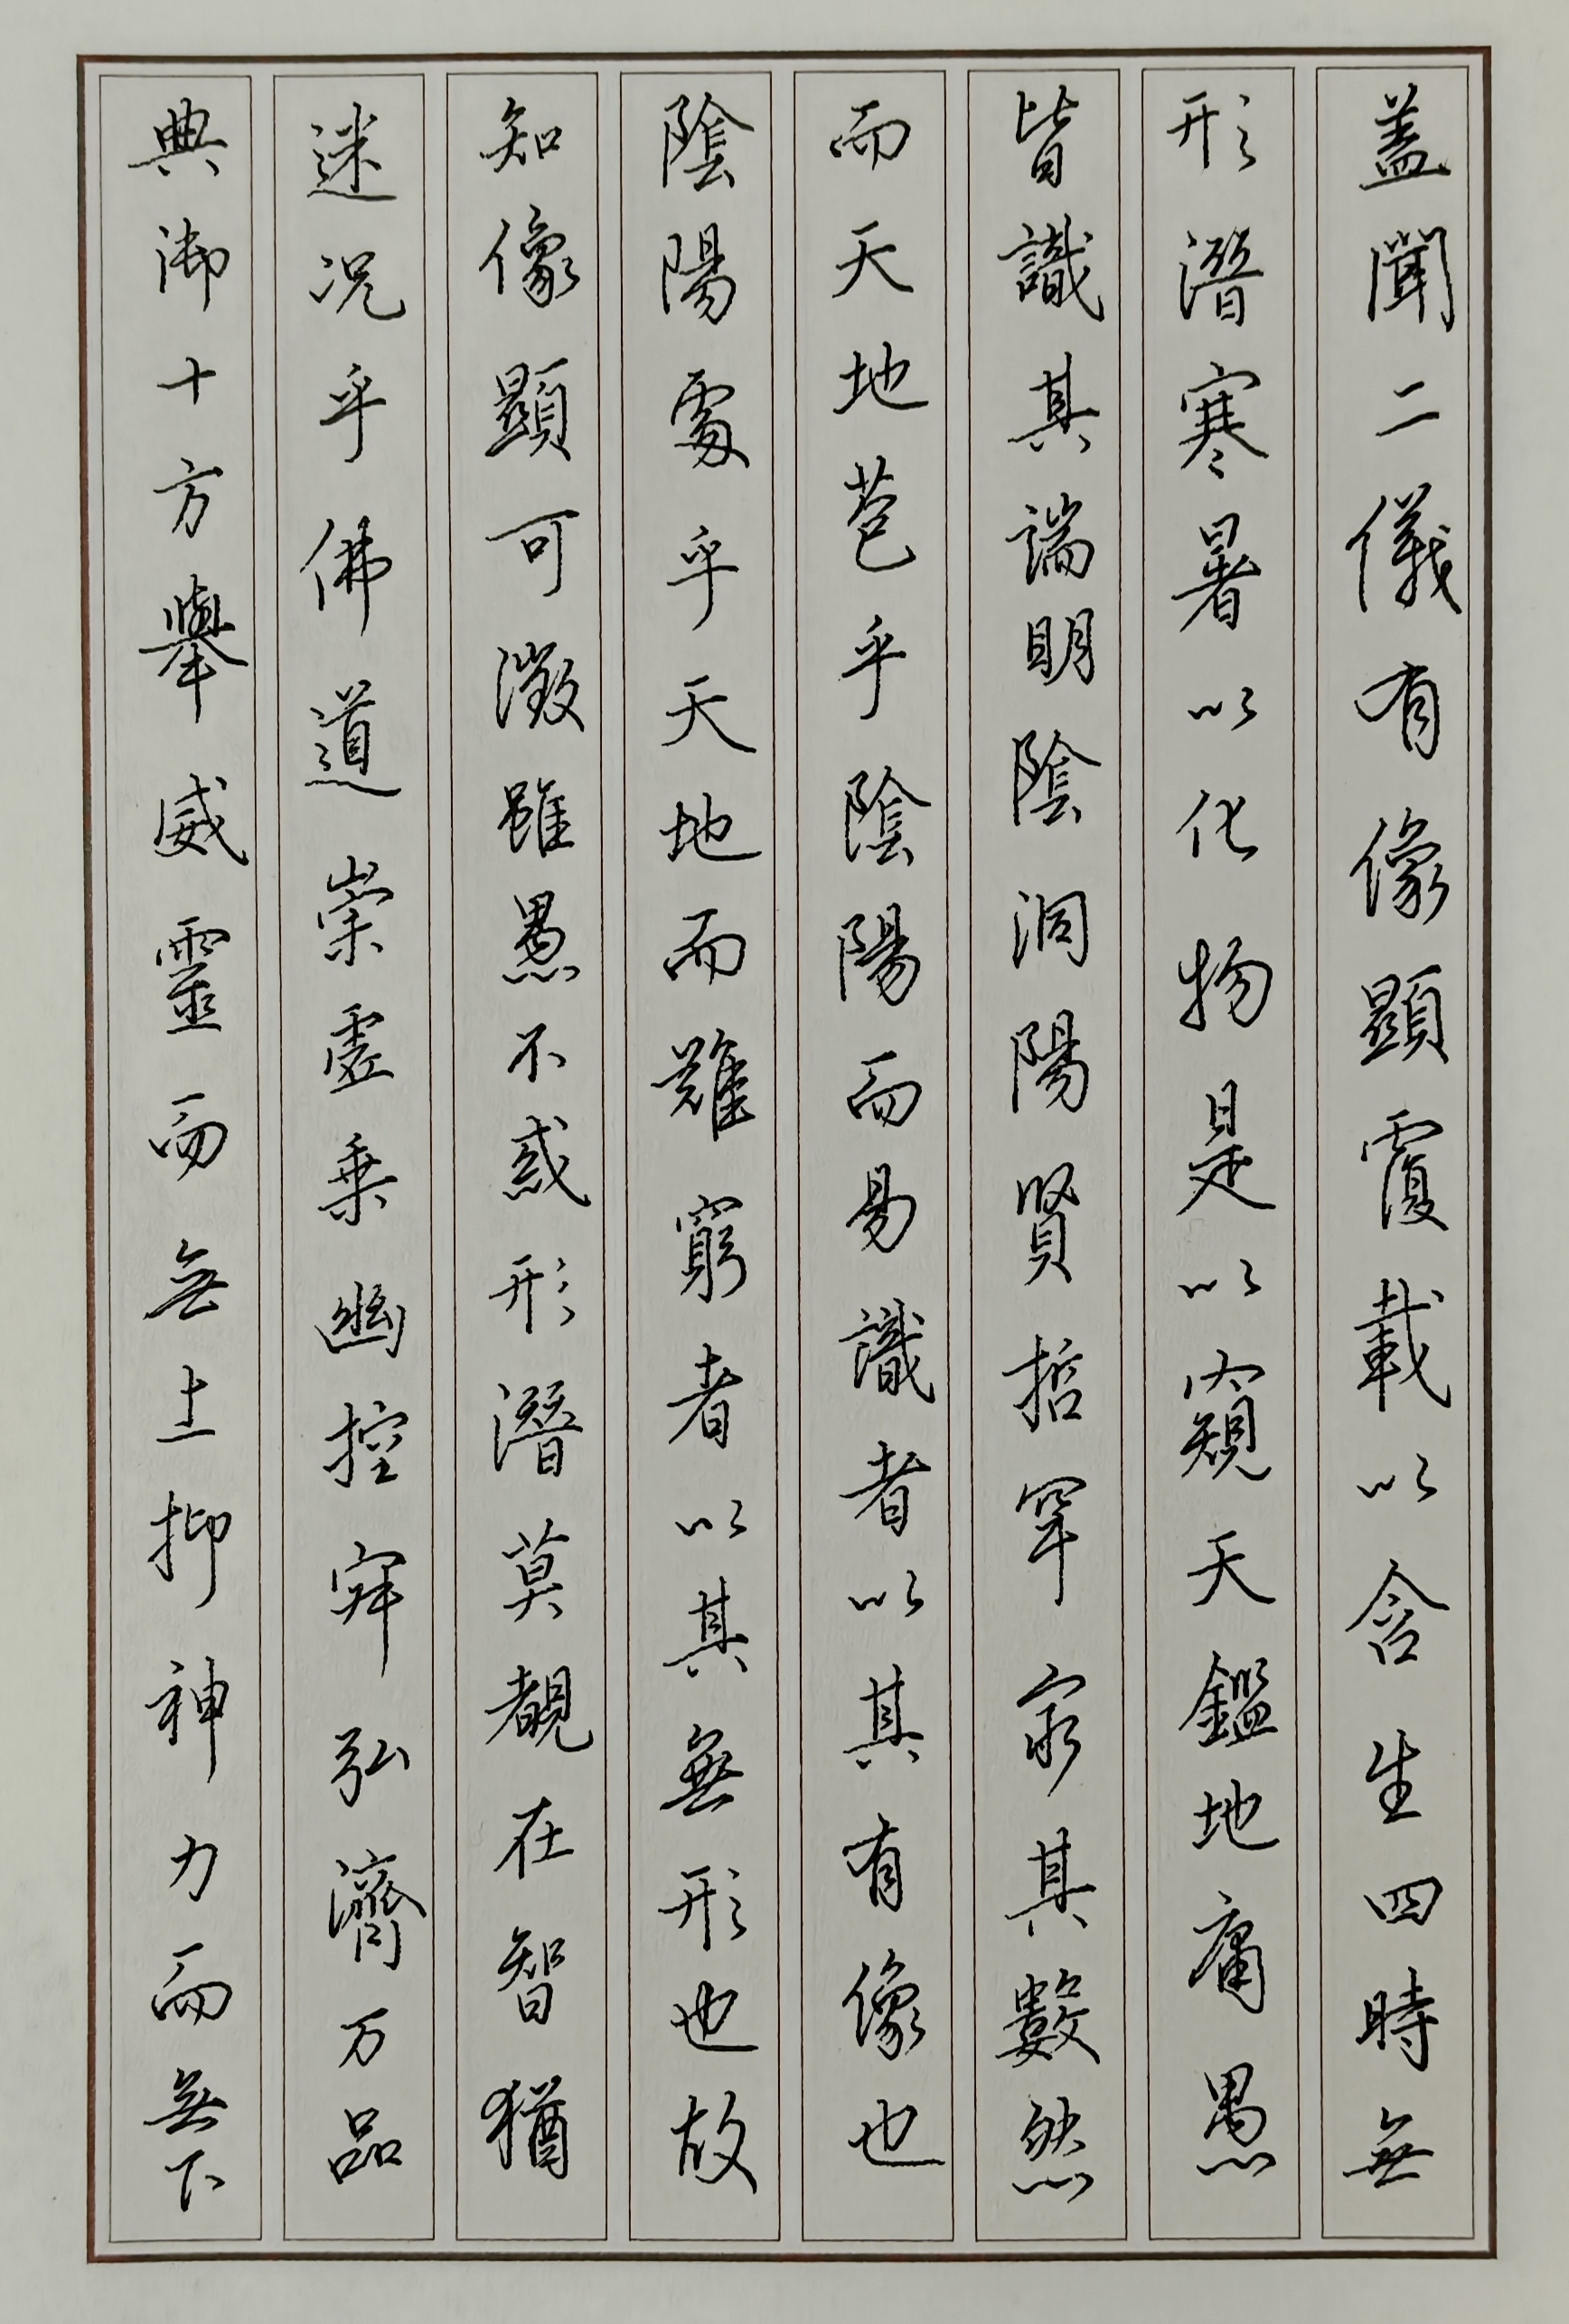 蓋聞二儀有像顯覆載以含生四時無
形潛寒暑以化物是以窺天鑑地庸愚
皆識其端明陰洞陽賢哲罕窮其數然
而天地苞乎陰陽而易識者以其有像也
陰陽處乎天地而難窮者以其無形也故
知像顯可徵雖愚不惑形潛莫覩在智猶
迷況乎佛道崇虛乘幽控寂弘濟万品
典御十方舉威靈而無上抑神力而無下